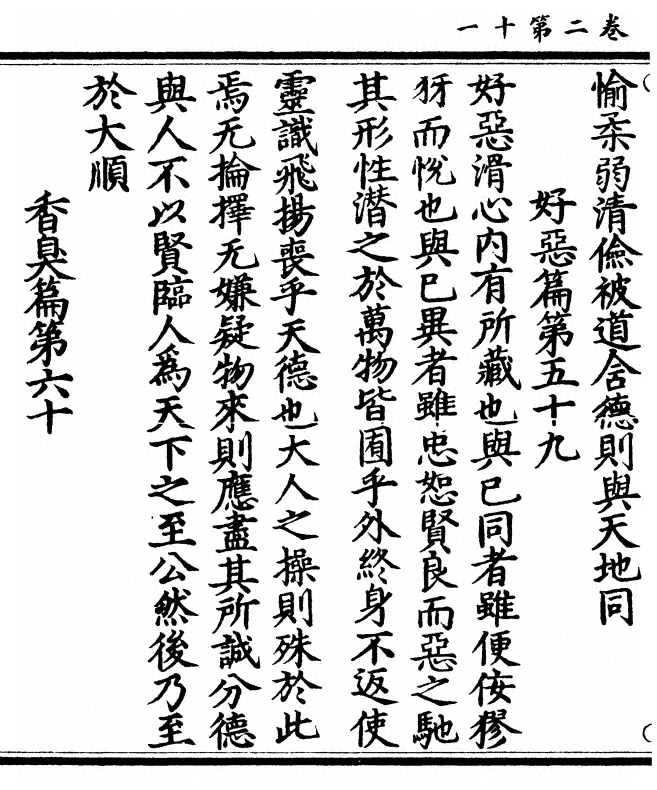 卷二第十一
愉柔弱清儉被道含德則與天地同
好惡篇第五十九
好惡滑心內有所藏也與已同者雖便侫獿
犽而悅也與已異者雖忠恕賢良而惡之馳
其形性潜之於萬物皆囿乎外終身不返使
靈識飛揚喪乎天德也大人之操則殊於此
焉无掄擇无嫌疑物來則應盡其所誠分德
與人不以賢臨人為天下之至公然後乃至
於大順
香臭篇第六十